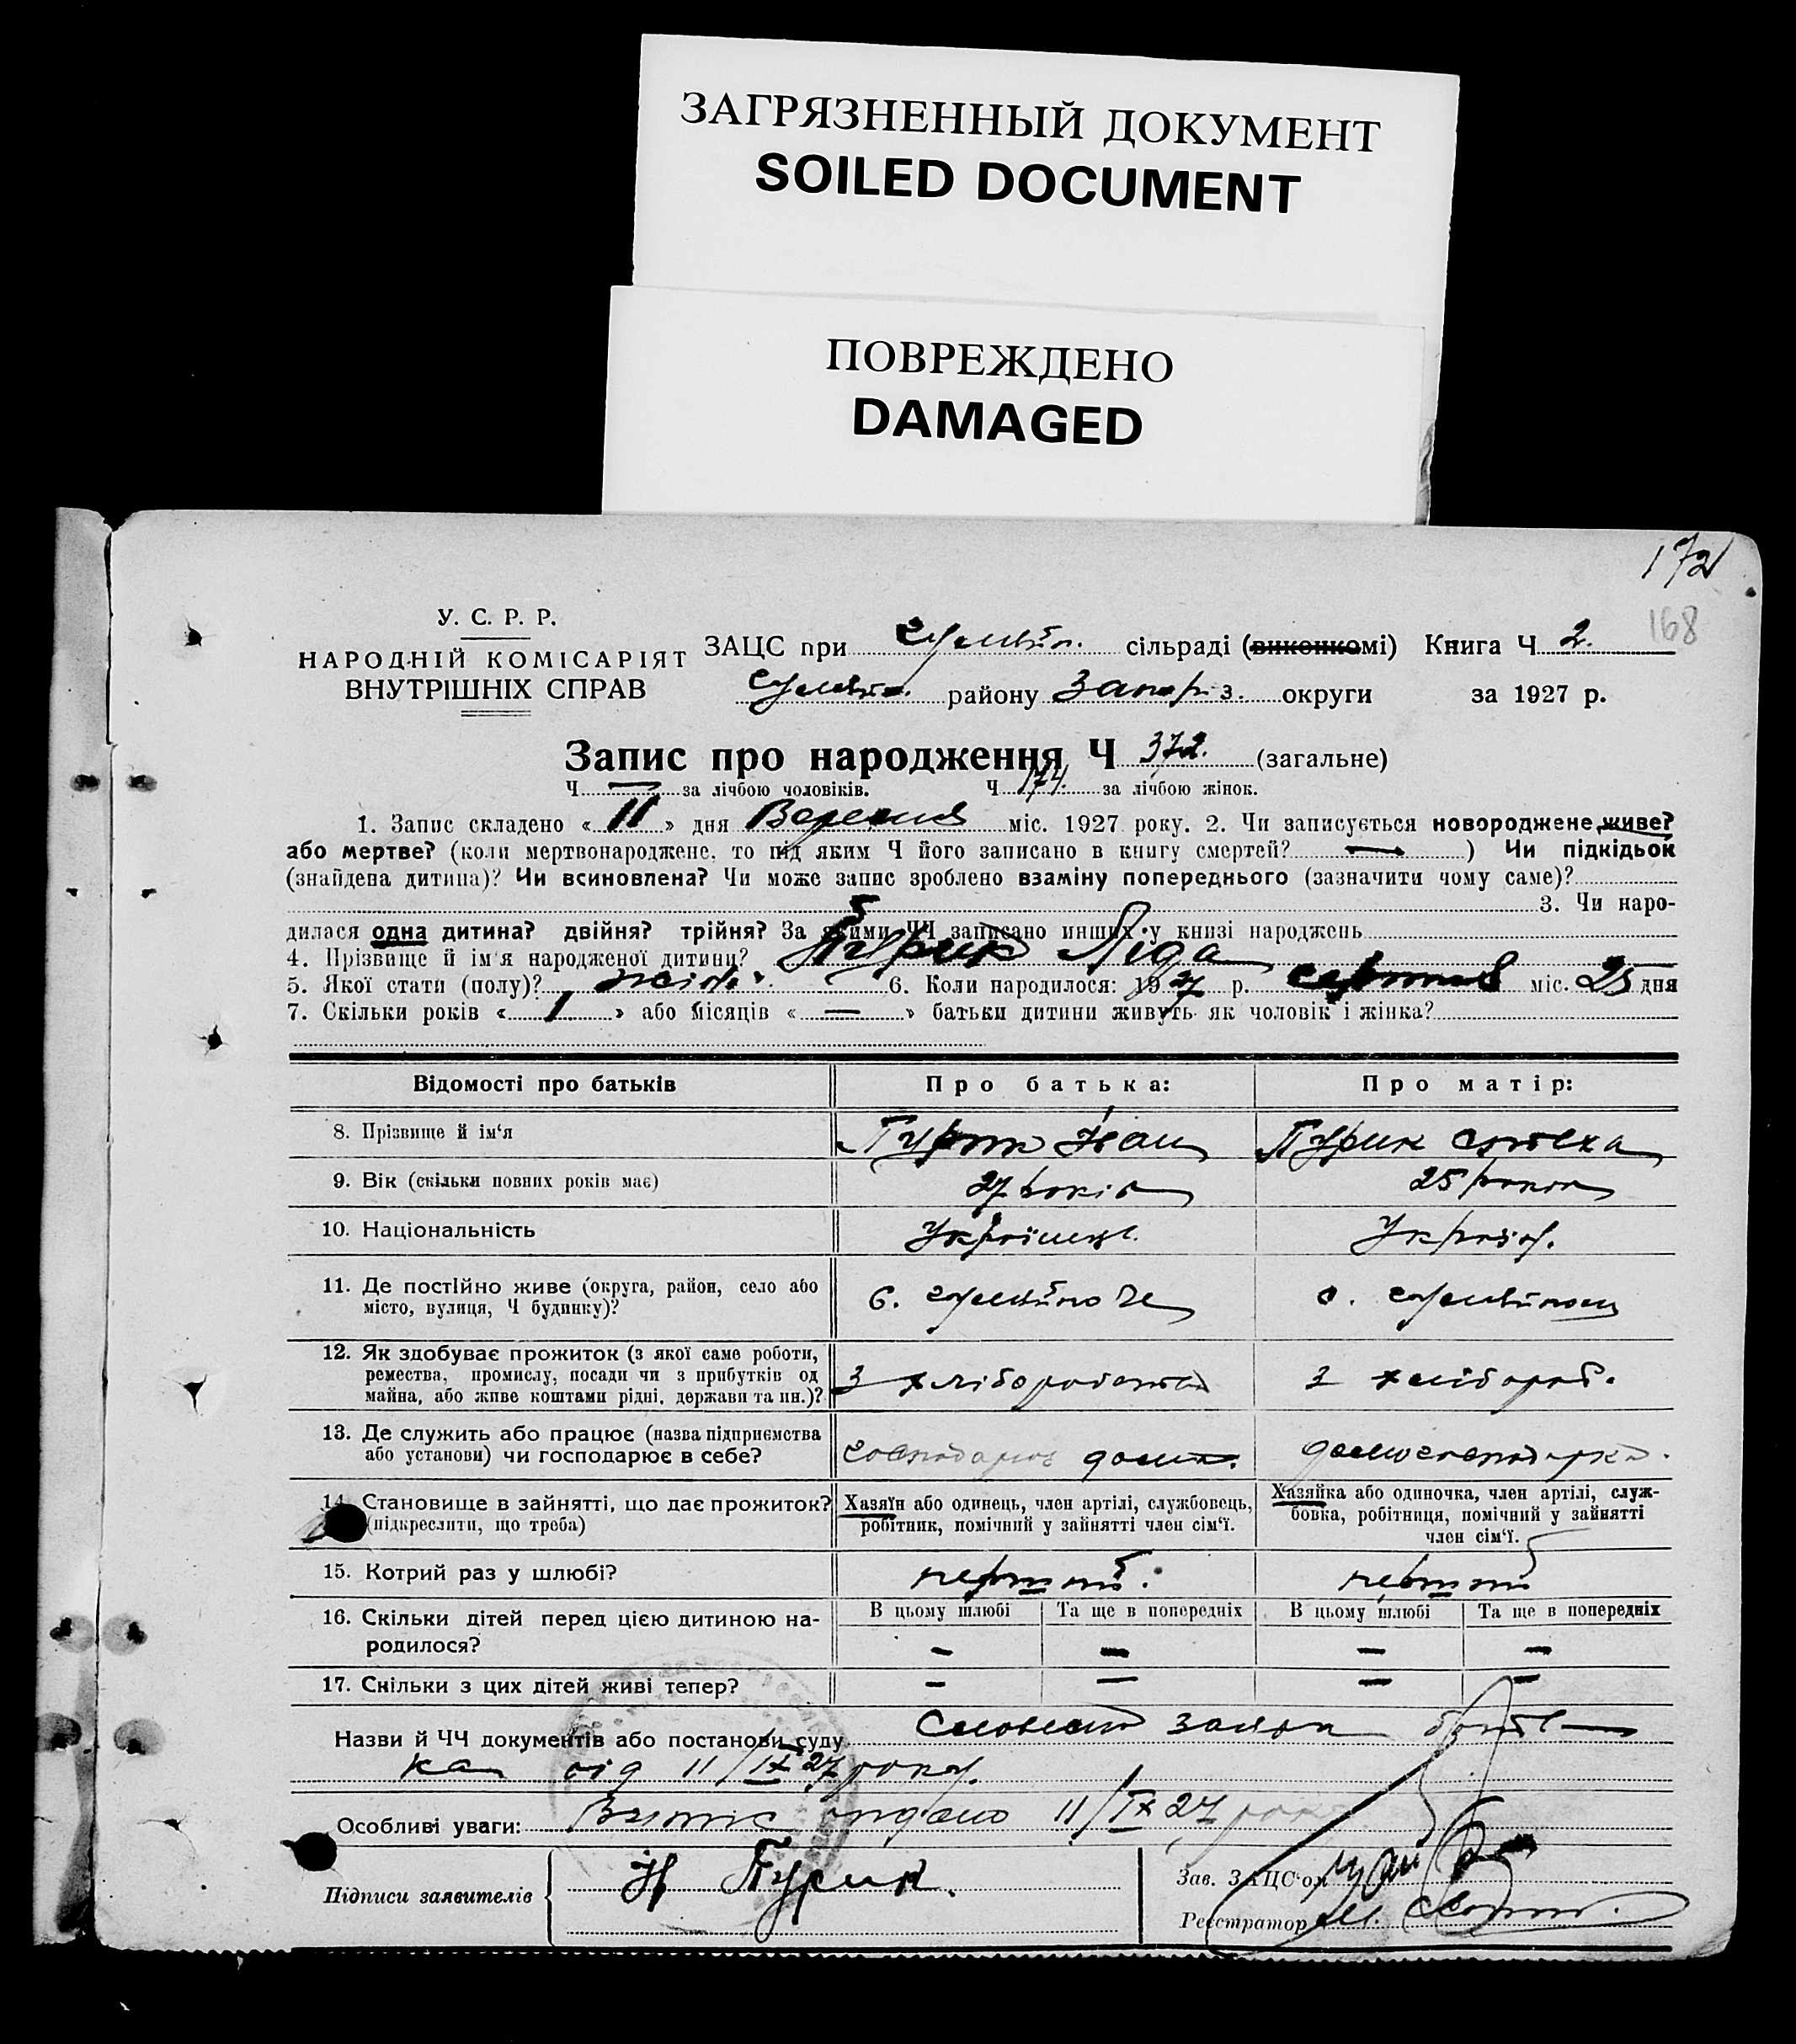 ЗАГРЯЗНЕННЫЙ ДОКУМЕНТ
SOILED DOCUMENT
ПОВРЕЖДЕНО
DAMAGED
172
168
У. С. Р. Р.
НАРОДНІЙ КОМІСАРІЯТ
ВНУТРІШНІХ СПРАВ
ЗАЦС при сільраді (виконкомі) Книга Ч 2.
району Запоріз. округи за 1927 р.
Запис про народження Ч 372. (загальне)
Ч — за лічбою чоловіків. Ч 174. за лічбою жінок.
1. Запис складено « 11 » дня Вересня міс. 1927 року. 2. Чи записується новороджене живе?
або мертве? (коли мертвонароджене, то під яким Ч його записано в книгу смертей? — ) Чи підкідьок
(знайдена дитина)? Чи всиновлена? Чи може запис зроблено взаміну попереднього (зазначити чому саме)?
3. Чи наро-
дилася одна дитина? двійня? трійня? За якими ЧЧ записано инших у книзі народжень
4. Прізвище й ім'я народженої дитини? Пурик Ліда
5. Якої стати (полу)? жіно. 6. Коли народилося: 1927 р. серпня міс. 25 дня
7. Скільки років « 1 » або місяців « — » батьки дитини живуть як чоловік і жінка?
Відомості про батьків Про батька: Про матір:
8. Прізвище й ім'я Пурик Іван Пурик
9. Вік (скільки повних років має) 27 років 25 років
10. Національність Українець. Украін.
11. Де постійно живе (округа, район, село або
місто, вулиця, Ч будинку)? с. с.
12. Як здобуває прожиток (з якої саме роботи,
ремества, промислу, посади чи з прибутків од
майна, або живе коштами рідні, держави та ин.)? З хліборобства З хлібороб.
13. Де служить або працює (назва підприємства
або установи) чи господарює в себе? господарює дома. домогосподарка.
14. Становище в зайнятті, що дає прожиток?
(підкреслити, що треба)
Хазяїн або одинець, член артілі, службовець,
робітник, помічний у зайнятті член сім'ї.
Хазяйка або одиночка, член артілі, служ-
бовка, робітниця, помічний у зайнятті
член сім'ї.
15. Котрий раз у шлюбі? перший. перший
16. Скільки дітей перед цією дитиною на-
родилося?
В цьому шлюбі Та ще в попередніх В цьому шлюбі Та ще в попередніх
— — — —
17. Скільки з цих дітей живі тепер? — — — —
Назви й ЧЧ документів або постанови суду Словесна заява батс
ка від 11/IX 27 року.
Особливі уваги: Витис видано 11/IX 27 року
Підписи заявителів И Пурик.
Зав. ЗАЦС'ом
Реєстратор М.